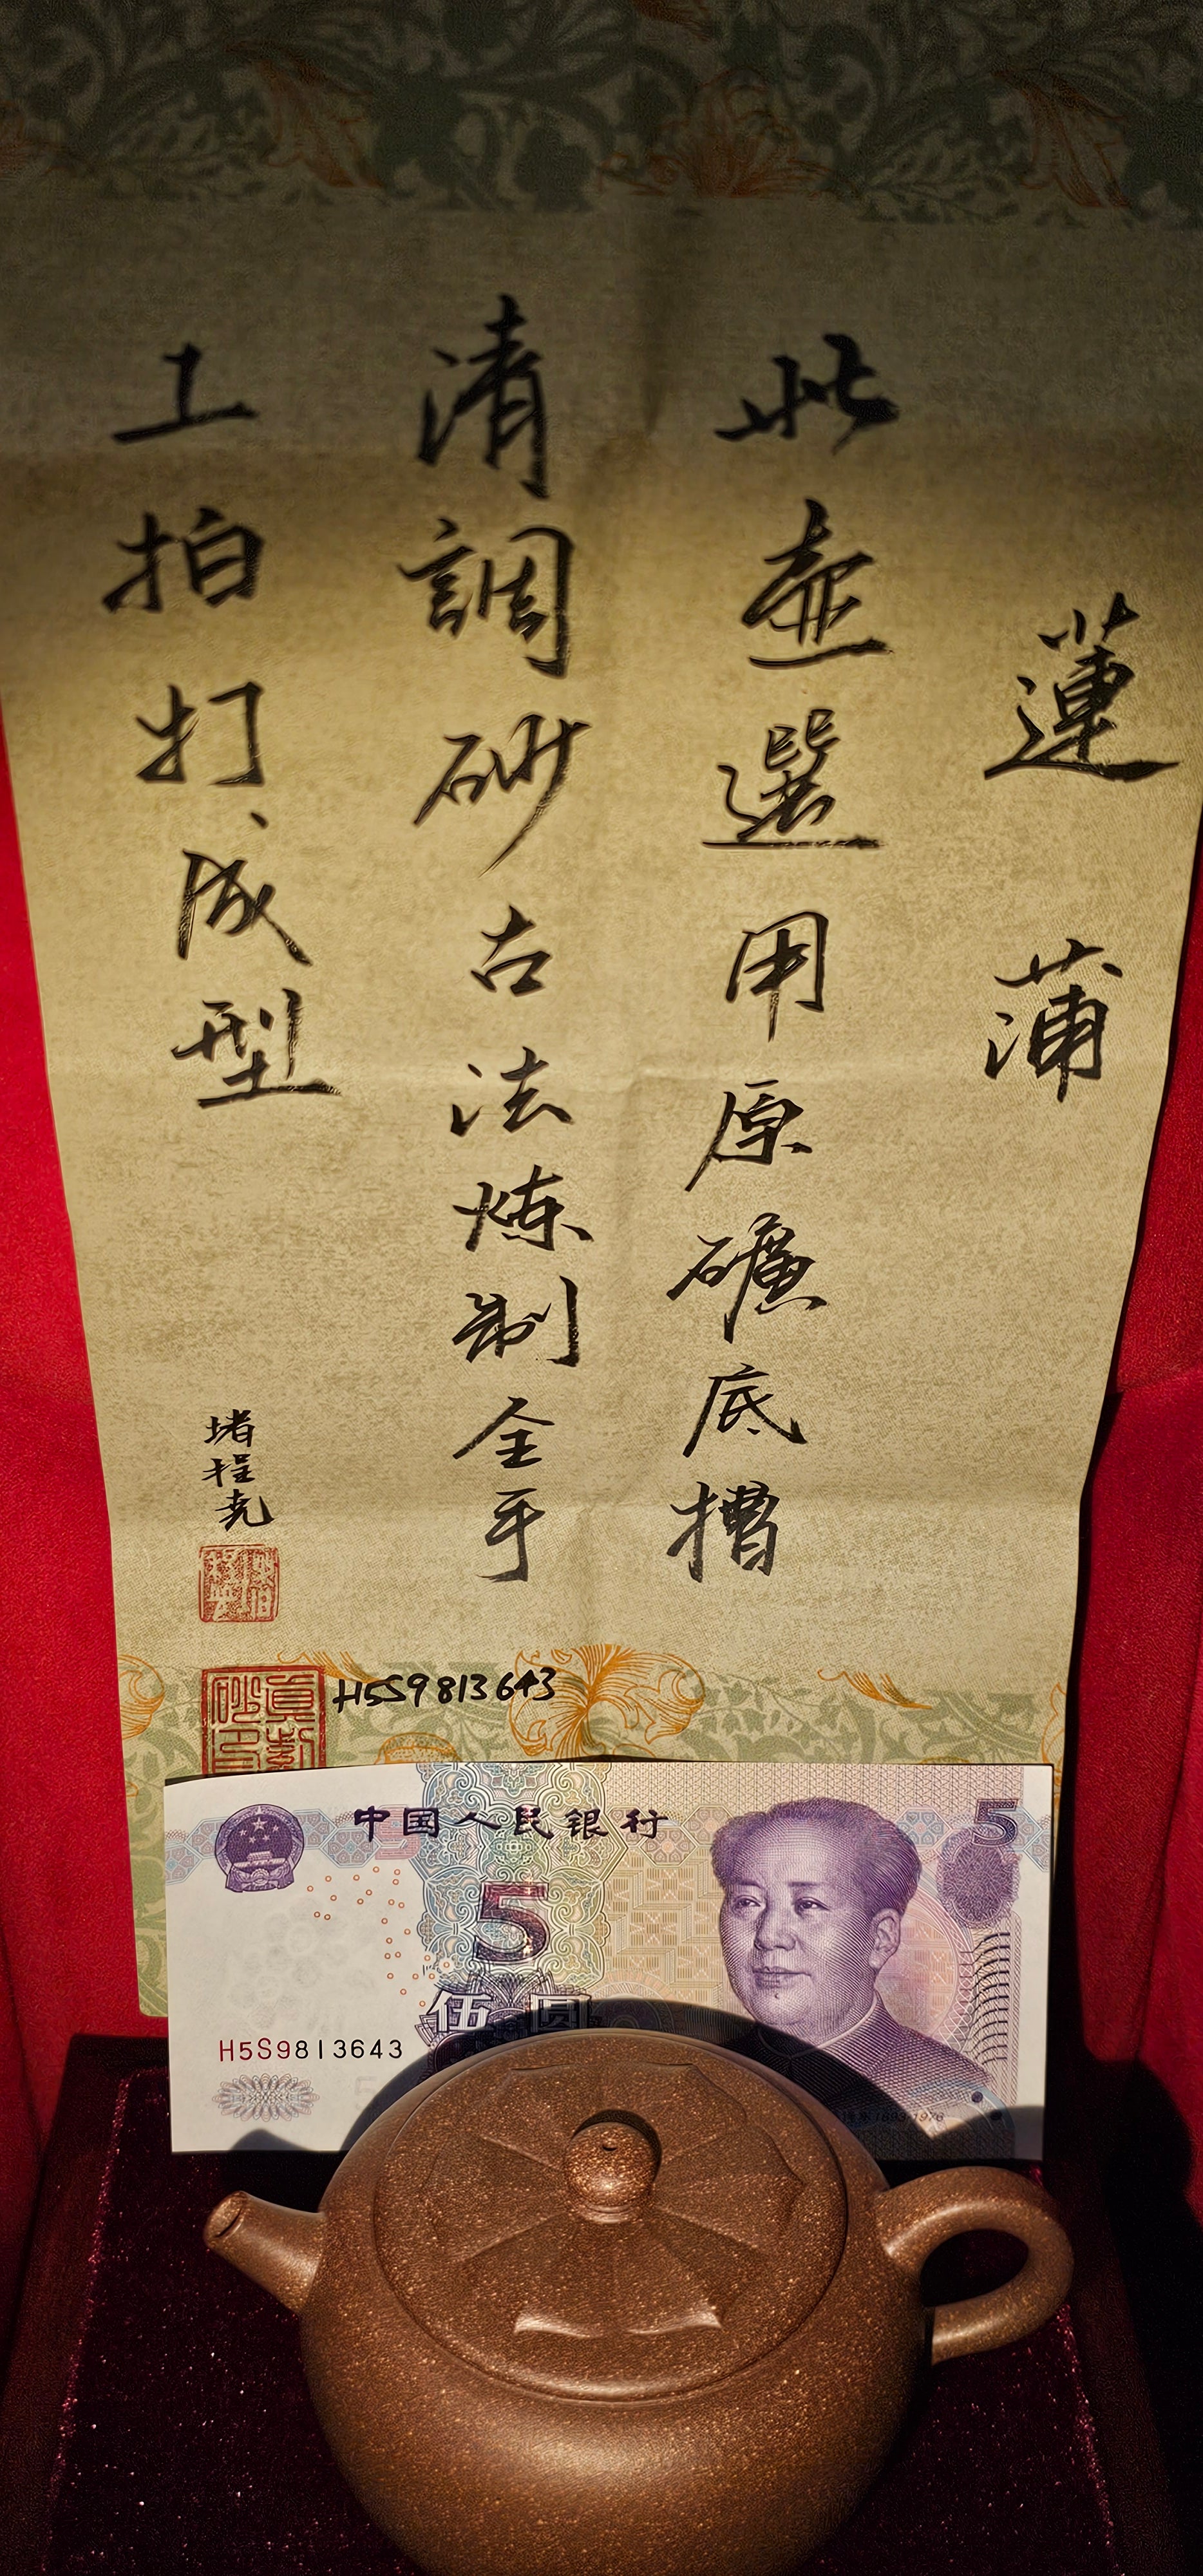 蓮蒲
此壺選用原礦底槽
清調砂古法炼制全手
工拍打成型
堵程尧
H5S9813643
中国人民银行
5
5
伍圆
H5S9813643